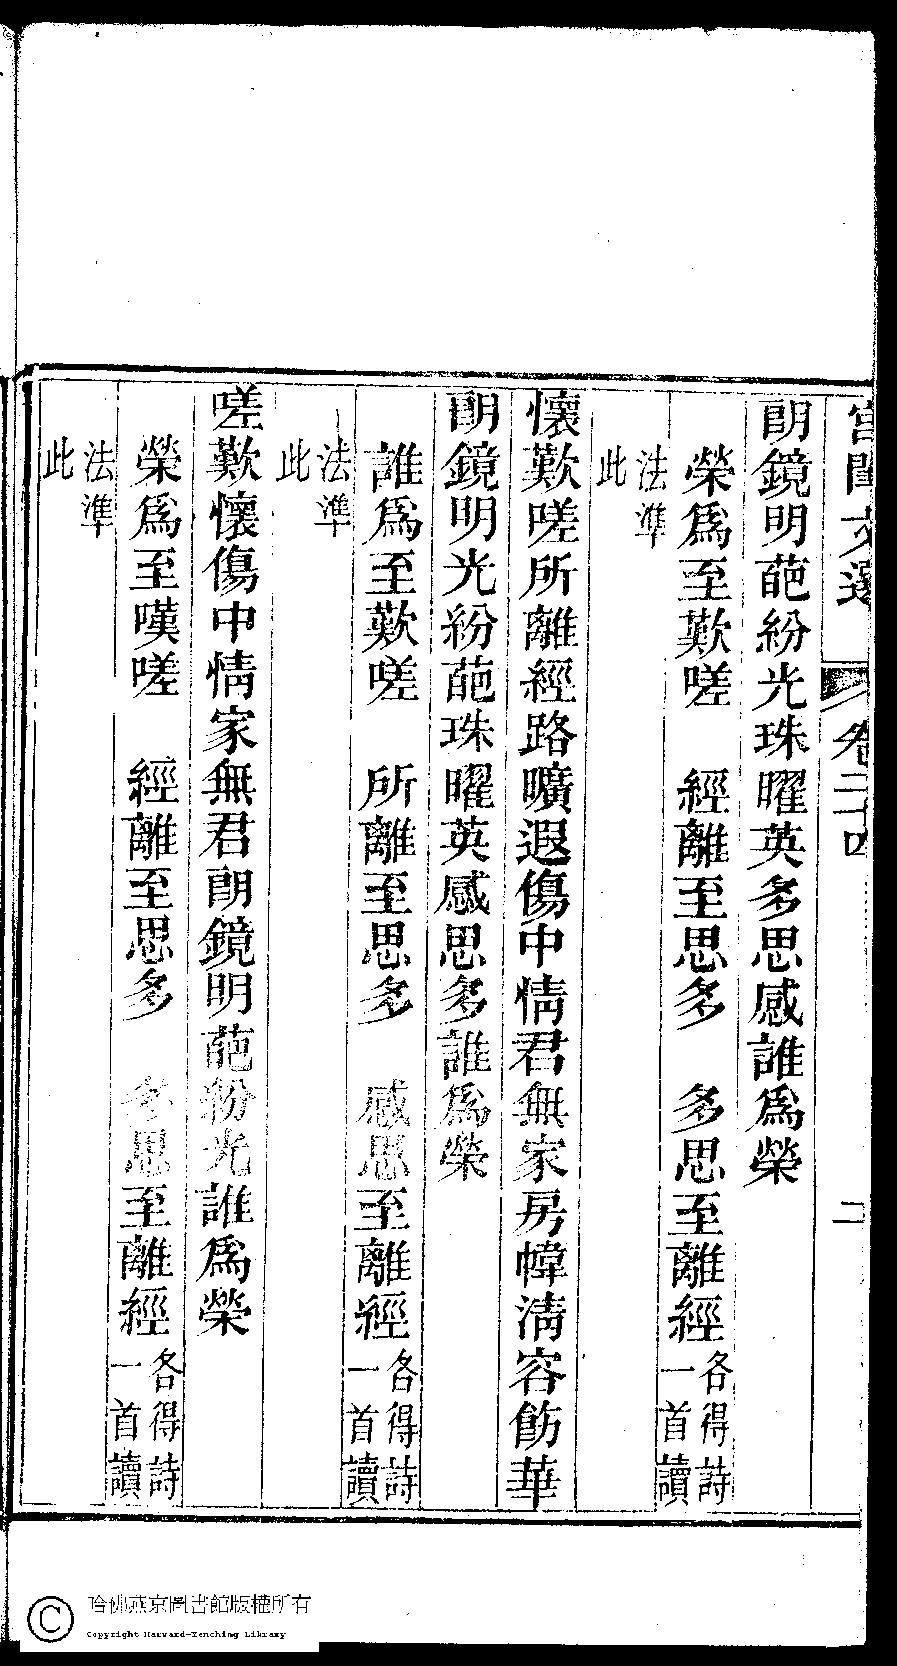 宮閨文選 卷二十四 二
朗鏡明葩紛光珠曜英多思感誰為榮
榮為至歎嗟 經離至思多 多思至離經 各得詩一首讀
法準此
懷歎嗟所離經路曠遐傷中情君無家房幃淸容飭華
朗鏡明光紛葩珠曜英感思多誰為榮
誰為至歎嗟 所離至思多 感思至離經 各得詩一首讀
法準此
嗟歎懷傷中情家無君朗鏡明葩紛光誰為榮
榮為至嘆嗟 經離至思多 多思至離經 各得詩一首讀
法準此
哈佛燕京圖書館版權所有
Copyright Harvard-Yenching Library